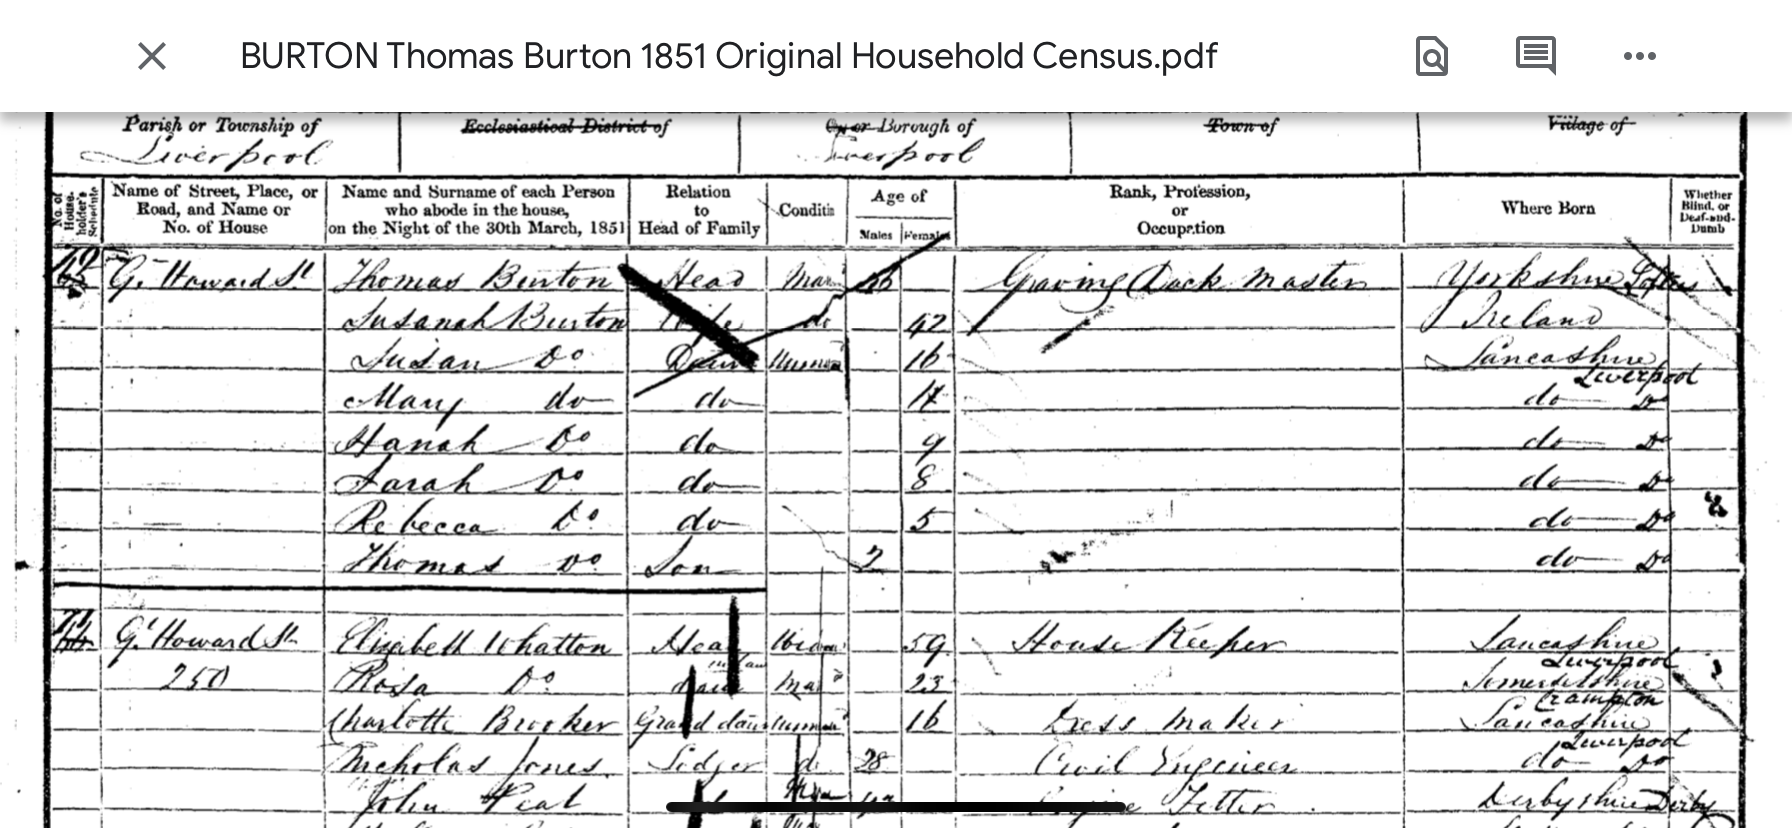 BURTON Thomas Burton 1851 Original Household Census.pdf
Parish or Township of Ecclesiastical District of City or Borough of Town of Village of
Liverpool Liverpool
No. of House-holder's Schedule Name of Street, Place, or Road, and Name or No. of House Name and Surname of each Person who abode in the house, on the Night of the 30th March, 1851 Relation to Head of Family Condition Age of Males Females Rank, Profession, or Occupation Where Born Whether Blind, or Deaf-and-Dumb
Gt Howard St Thomas Burton Head Mar Graving Dock Master Yorkshire
Susanah Burton Wife do 42 Ireland
Susan Do Daur Unmar 16 Lancashire Liverpool
Mary do do do Do
Hanah Do do 9 do Do
Sarah Do do 8 do Do
Rebecca Do do 5 do Do
Thomas Do Son 2 do Do
Gt Howard St Elizabeth Whatton Head Widow 59 House Keeper Lancashire Liverpool
250 Rosa Do in law daur Mar 23 Somersetshire
Charlotte Brooker Grand daur Unmar 16 Dress Maker Lancashire Liverpool
Nicholas Jones Lodger d. 28 Civil Engineer do Do
John Peat Fitter Derbyshire Derby